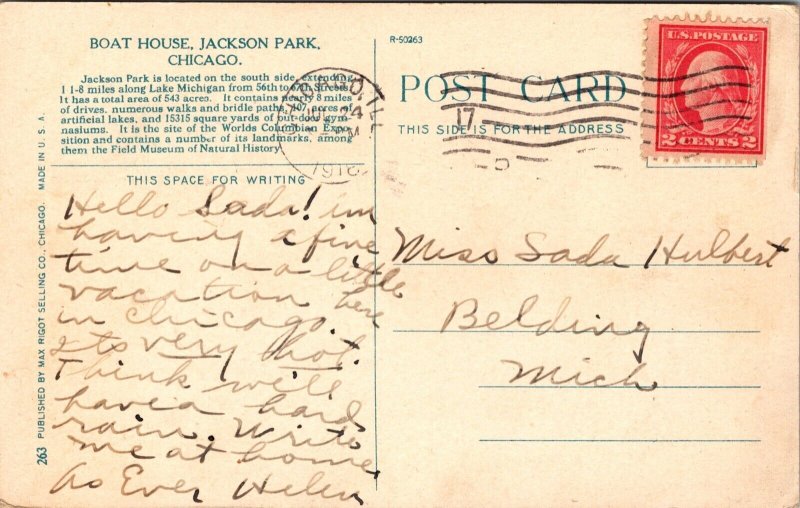 BOAT HOUSE, JACKSON PARK,
CHICAGO.
Jackson Park is located on the south side, extending
1 1-8 miles along Lake Michigan from 56th to 67th Streets.
It has a total area of 543 acres. It contains 8 miles
of drives, numerous walks and bridle paths, 107 acres of
artificial lakes, and 15315 square yards of out-door gym-
nasiums. It is the site of the Worlds Columbian Expo-
sition and contains a number of its landmarks, among
them the Field Museum of Natural History.
THIS SPACE FOR WRITING
Hello Sada! im
having a fine
time on a little
vacation here
in chicago.
Its very hot.
Think will
have a hard
rain. Write
me at home,
As Ever Helen
263 PUBLISHED BY MAX RIGOT SELLING CO., CHICAGO. MADE IN U. S. A.
R-50263
POST CARD
THIS SIDE IS FOR THE ADDRESS
CHICAGO, ILL
24
PM
1918
17
U.S. POSTAGE
2 CENTS 2
Miss Sada Hulbert
Belding
Mich